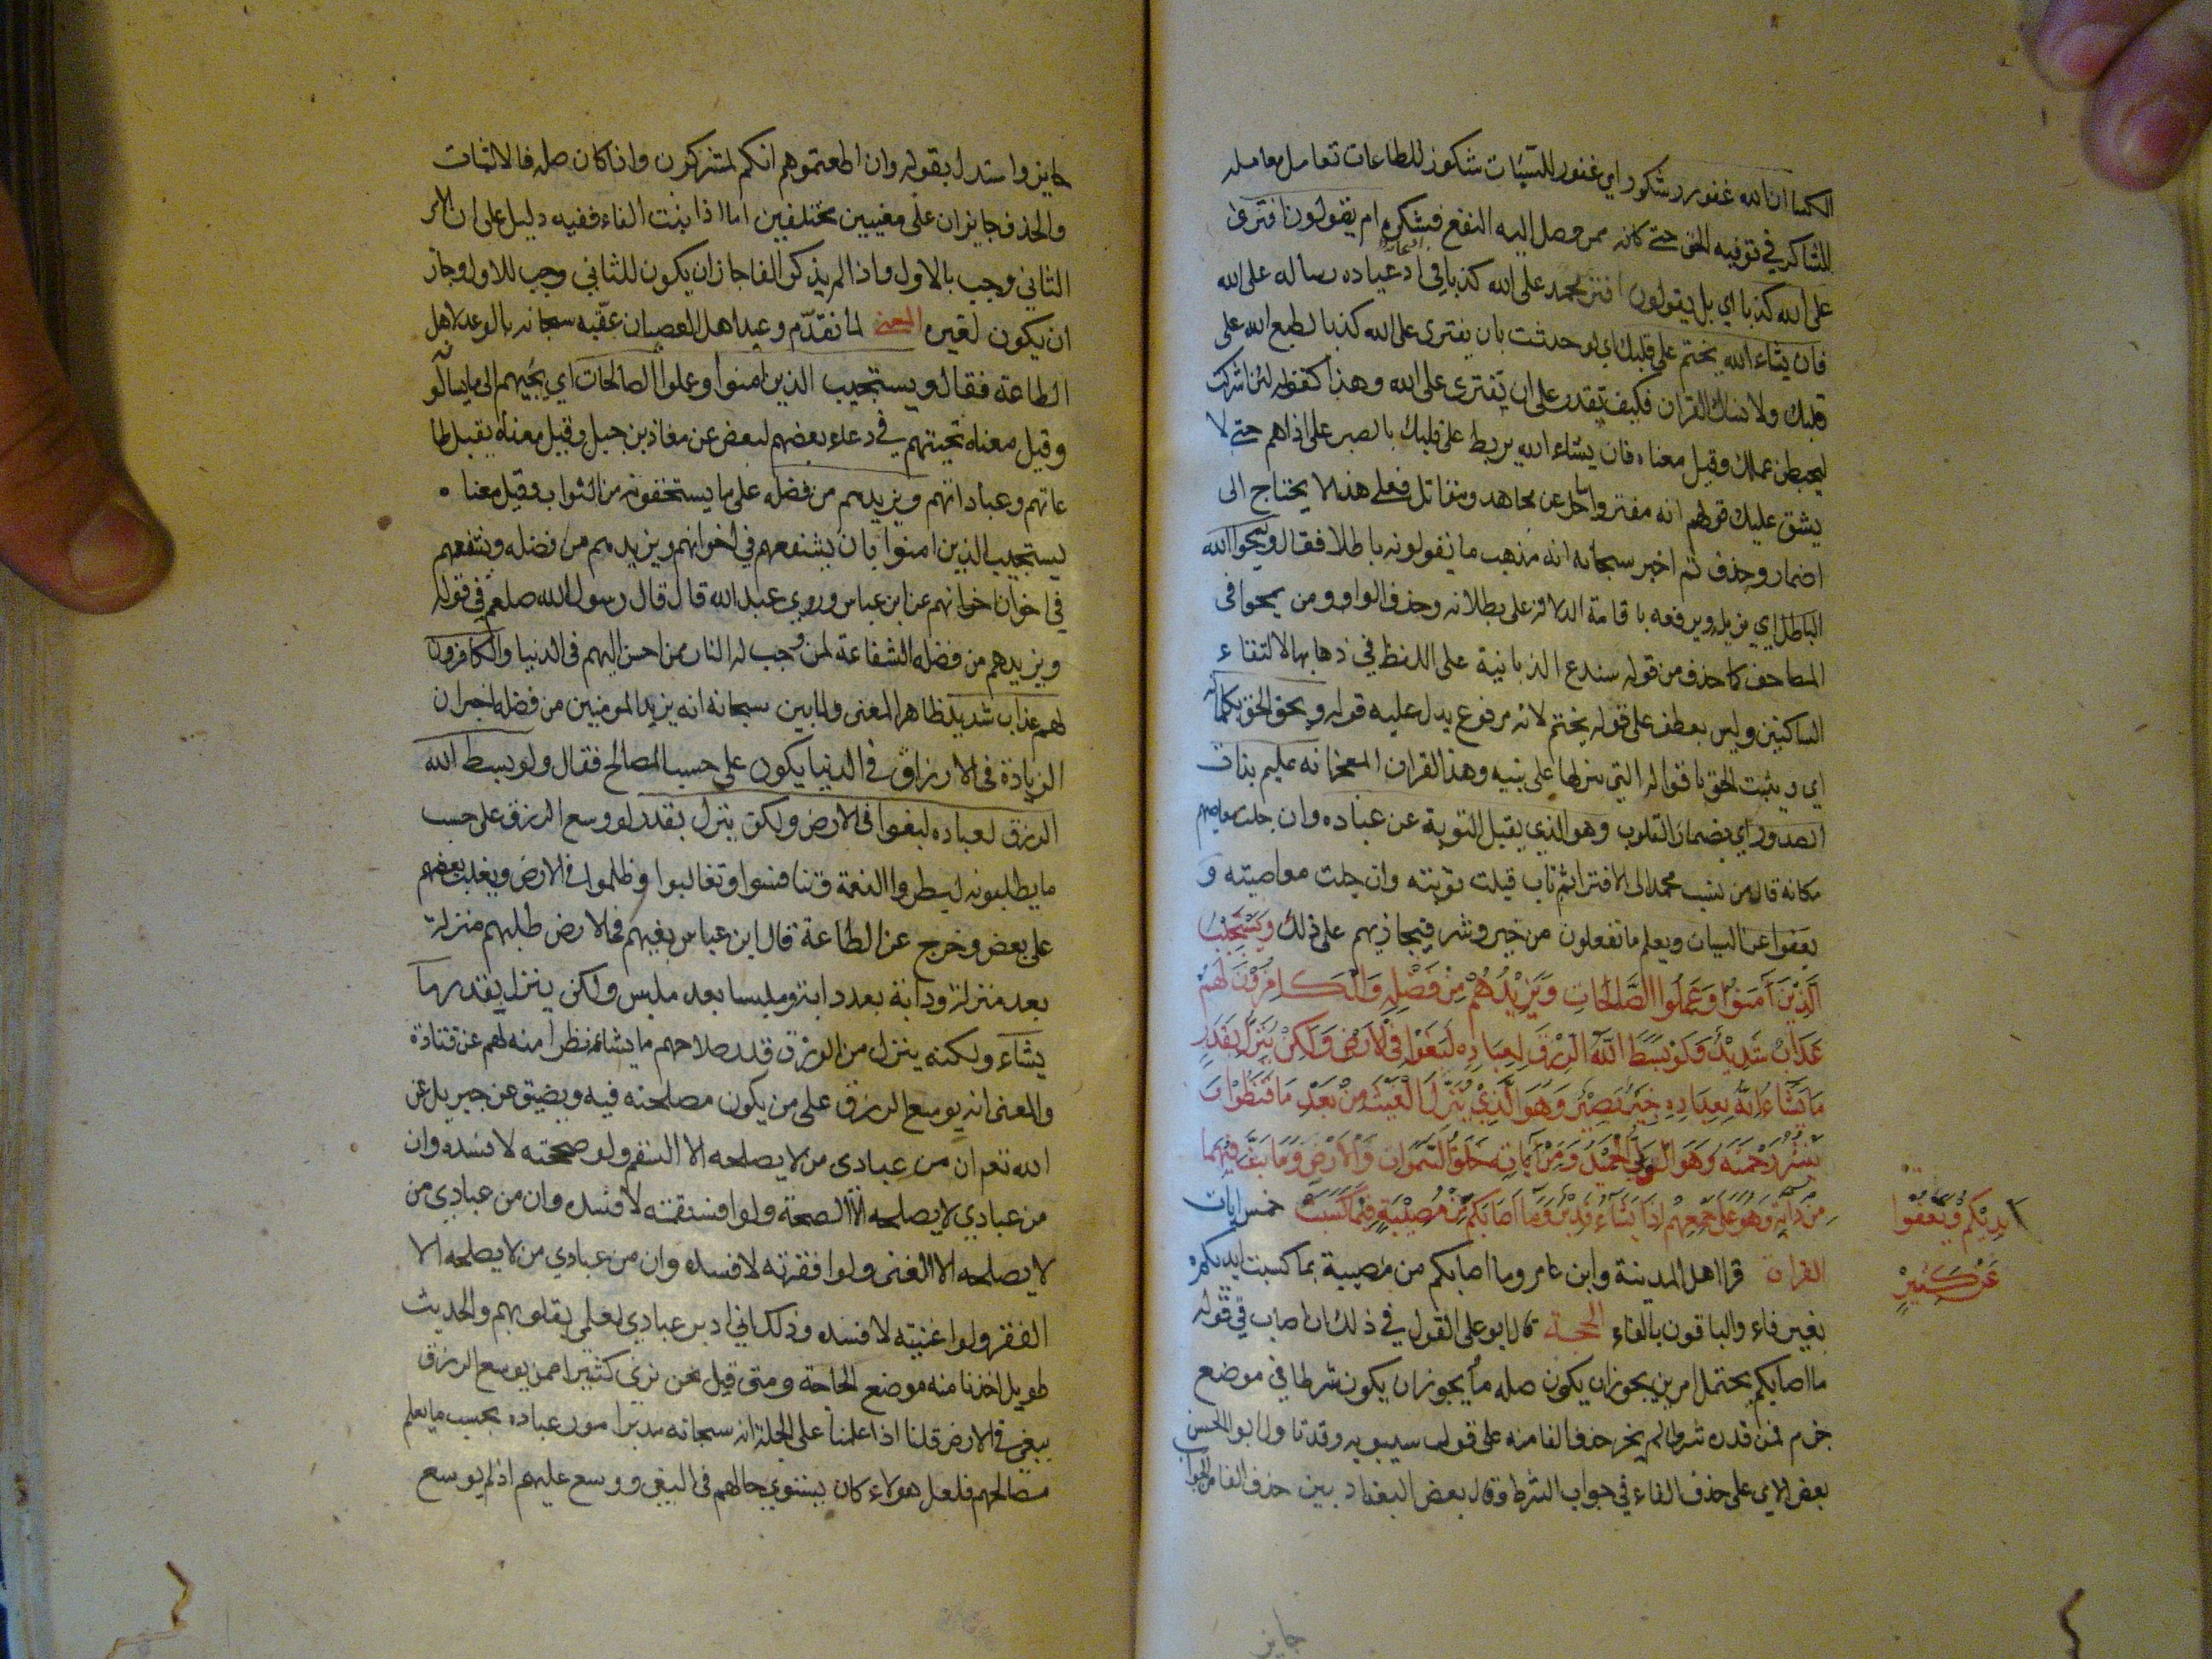 الكساا ان الله غفور شكور اي غفور للسيئات شكور للطاعات تعامل معامله
للشاكر في توفيه الحق حتى كانه ممن وصل اليه النفع فشكره ام يقولون افترى
على الله كذبا اي بل يقولون افترى محمد على الله كذبا في ادعائه رساله على الله
فان يشاء الله يختم على قلبك اي لو حدثت بان يفترى على الله كذبا لطبع الله على
قلبك ولانساك القران فكيف تقدر على ان تفترى على الله وهذا كقوله لئن اشركت
ليحبطن عملك وقيل معناه فان يشاء الله يربط على قلبك بالصبر على اذاهم حتى لا
يشق عليك قولهم انه مفتر وساحر عن مجاهد ومقاتل فعلى هذا لا يحتاج الى
اضمار وحذف ثم اخبر سبحانه انه مذهب ما يقولونه باطلا فقال ويمحوا الله
الباطل اي يزيله ويرفعه باقامة الدلائل على بطلانه وحذف الواو ومن يمحوا في
المصاحف كما حذف من قوله سندع الزبانية على اللفظ في ذهابها لالتقاء
الساكنين وليس بعطف على قوله يختم لانه مرفوع يدل عليه قوله ويحق الحق بكلماته
اي ويثبت الحق باقواله التي ينزلها على نبيه وهذا القران المعجز انه عليم بذات
الصدور اي بضمائر القلوب وهو الذي يقبل التوبة عن عباده وان جلت معاصيهم
مكانه قال من نسب محمدا الى الافتراء ثم تاب قبلت توبته وان جلت معاصيته و
يعفوا عن السيات ويعلم ما تفعلون من خير وشر فيجازيهم على ذلك وَيَسْتَجِيبُ
الَّذِينَ آمَنُوا وَعَمِلُوا الصَّالِحَاتِ وَيَزِيدُهُمْ مِنْ فَضْلِهِ وَالْكَافِرُونَ لَهُمْ
عَذَابٌ شَدِيدٌ وَلَوْ بَسَطَ اللَّهُ الرِّزْقَ لِعِبَادِهِ لَبَغَوْا فِي الْأَرْضِ وَلَكِنْ يُنَزِّلُ بِقَدَرٍ
مَا يَشَاءُ إِنَّهُ بِعِبَادِهِ خَبِيرٌ بَصِيرٌ وَهُوَ الَّذِي يُنَزِّلُ الْغَيْثَ مِنْ بَعْدِ مَا قَنَطُوا وَ
يَنْشُرُ رَحْمَتَهُ وَهُوَ الْوَلِيُّ الْحَمِيدُ وَمِنْ آيَاتِهِ خَلْقُ السَّمَوَاتِ وَالْأَرْضِ وَمَا بَثَّ فِيهِمَا
مِنْ دَابَّةٍ وَهُوَ عَلَى جَمْعِهِمْ إِذَا يَشَاءُ قَدِيرٌ وَمَا أَصَابَكُمْ مِنْ مُصِيبَةٍ فَبِمَا كَسَبَتْ خمس ايات
اَيْدِيكُمْ وَيَعْفُوا
عَنْ كَثِيرٍ
القراة قرا اهل المدينة وابن عامر وما اصابكم من مصيبة بما كسبت ايديكم
بغير فاء والباقون بالفاء الحجة قال ابو على القول في ذلك ان اصاب في قوله
ما اصابكم يحتمل امرين يجوز ان يكون صله ما يجوز ان يكون شرطا في موضع
جزم فمن قدره شرطا لم يجز حذف الفا منه على قول سيبويه وقد تاول ابو الحسن
بعض الاى على حذف الفاء في جواب الشرط وقال بعض البغداديين حذف الفا من الجواب
جايز
جايز واستدل بقوله وان اطعتموهم انكم لمشركون واذا كان صله فالاثبات
والحذف جايزان على معنيين مختلفين اما اذا ثبت الفاء ففيه دليل على ان الامر
الثاني وجب بالاول واذا لم يذكر الفا جاز ان يكون للثاني وجب للاول وجاز
ان يكون لغيره المعنى لما تقدّم وعيد اهل العصيان عقّبه سبحانه بالوعد لاهل
الطاعة فقال ويستجيب الذين امنوا وعملوا الصالحات اي يجيبهم الى ما يسالو
وقيل معناه يجيبهم في دعاء بعضهم لبعض عن معاذ بن جبل وقيل معناه يقبل طا
عاتهم وعباداتهم ويزيدهم من فضله على ما يستحقونه من الثواب وقيل معناه
يستجيب الذين امنوا بان يشفعهم في اخوانهم ويزيدهم من فضله ويشفعهم
في اخوان اخوانهم عن ابن عباس وروي عبد الله قال قال رسول الله صلعم في قوله
ويزيدهم من فضله الشفاعة لمن وجب له النار ممن احسن اليهم في الدنيا والكافرون
لهم عذاب شديد ظاهر المعنى ولما بين سبحانه انه يزيد المومنين من فضله اخبر ان
الزيادة في الارزاق في الدنيا يكون على حسب المصالح فقال ولو بسط الله
الرزق لعباده لبغوا في الارض ولكن ينزل بقدر لو وسع الرزق على حسب
ما يطلبونه لبطروا النعمة وتنافسوا وتغالبوا وظلموا في الارض ويغلب بعضهم
على بعض وخرج عن الطاعة قال ابن عباس بغيهم في الارض طلبهم منزلة
بعد منزلة ودابة بعد دابة وملبسا بعد ملبس ولكن ينزل بقدر ما
يشاء ولكنه ينزل من الرزق قدر صلاحهم ما يشاء نظرا منه لهم عن قتادة
والمعنى انه يوسع الرزق على من يكون مصلحته فيه ويضيق عن جبريل عن
الله تعم ان من عبادى من لا يصلحه الا السقم ولو صححته لافسده وان
من عبادي لا يصلحه الا الصحة ولو اسقمته لافسده وان من عبادي من
لا يصلحه الا الغنى ولو افقرته لافسده وان من عبادي من لا يصلحه الا
الفقر ولو اغنيته لافسده وذلك اني ادبر عبادي لعلمي بقلوبهم والحديث
طويل اخذنا منه موضع الحاجة ومتى قيل نحن نرى كثيرا ممن يوسع الرزق
يبغي في الارض قلنا اذا علمنا على الجملة انه سبحانه مدبر امور عباده بحسب ما يعلم
مصالحهم فلعل هولاء كان يستوي حالهم في البغى ووسع عليهم اذ لم يوسع